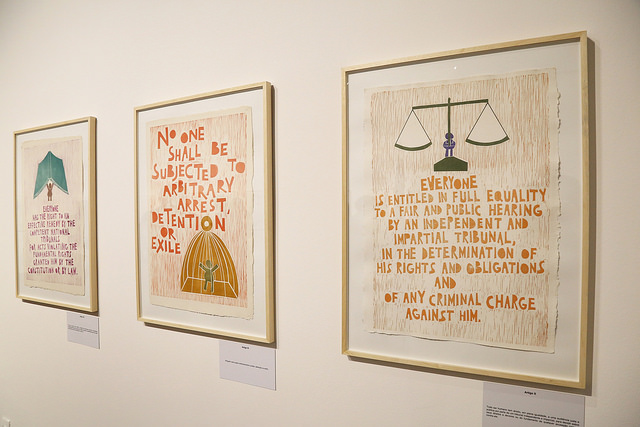 EVERYONE
HAS THE RIGHT TO AN
EFFECTIVE REMEDY BY THE
COMPETENT NATIONAL
TRIBUNALS
FOR ACTS VIOLATING THE
FUNDAMENTAL RIGHTS
GRANTED HIM BY THE
CONSTITUTION OR BY LAW.
NO ONE
SHALL BE
SUBJECTED TO
ARBITRARY
ARREST,
DETENTION
OR
EXILE
EVERYONE
IS ENTITLED IN FULL EQUALITY
TO A FAIR AND PUBLIC HEARING
BY AN INDEPENDENT AND
IMPARTIAL TRIBUNAL,
IN THE DETERMINATION OF
HIS RIGHTS AND OBLIGATIONS
AND
OF ANY CRIMINAL CHARGE
AGAINST HIM.